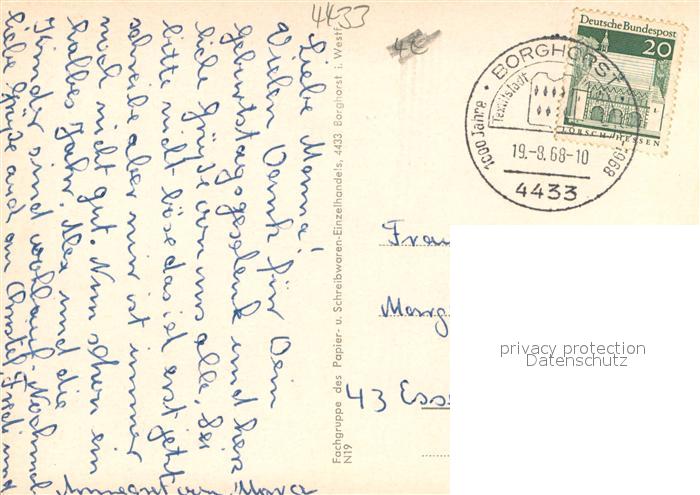 4433
4€
Deutsche Bundespost
20
LORSCH-HESSEN
BORGHORST
1000 Jahre
1968
Textilstadt
19.-8.68-10
4433
Liebe Mama!
Vielen Dank für Dein
Geburtstagsgeschenk und herz
liche Grüße von uns alle, Sei
bitte nicht böse das ich erst jetzt
schreibe aber mir ist immer
noch nicht gut. Nun schon ein
halbes Jahr. Max und die
Kinder sind wohlauf. Nochmal
liebe Grüße auch an Christel, Fredi und
Annegret von Maria
Fachgruppe des Papier- u. Schreibwaren-Einzelhandels, 4433 Borghorst i. Westf.
N19
Frau
Marg
43 Ess
privacy protection
Datenschutz